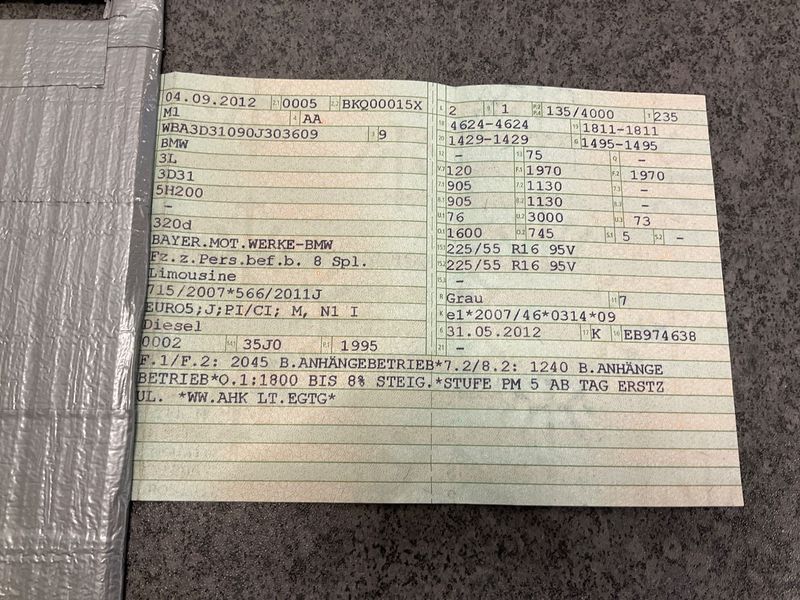 04.09.2012 2.1 0005 2.2 BKQ00015X
M1 4 AA
WBA3D31090J303609 3 9
BMW
3L
3D31
5H200
-
320d
BAYER.MOT.WERKE-BMW
Fz.z.Pers.bef.b. 8 Spl.
Limousine
715/2007*566/2011J
EURO5;J;PI/CI; M, N1 I
Diesel
0002 14.1 35J0 P.1 1995
L 2 9 1 P.2 P.4 135/4000 T 235
18 4624-4624 19 1811-1811
20 1429-1429 G 1495-1495
12 - 13 75 Q -
V.7 120 F.1 1970 F.2 1970
7.1 905 7.2 1130 7.3 -
8.1 905 8.2 1130 8.3 -
U.1 76 U.2 3000 U.3 73
O.1 1600 O.2 745 S.1 5 S.2 -
15.1 225/55 R16 95V
15.2 225/55 R16 95V
15.3 -
R Grau 11 7
K e1*2007/46*0314*09
6 31.05.2012 17 K 16 EB974638
21 -
F.1/F.2: 2045 B.ANHÄNGEBETRIEB*7.2/8.2: 1240 B.ANHÄNGE
BETRIEB*O.1:1800 BIS 8% STEIG.*STUFE PM 5 AB TAG ERSTZ
UL. *WW.AHK LT.EGTG*